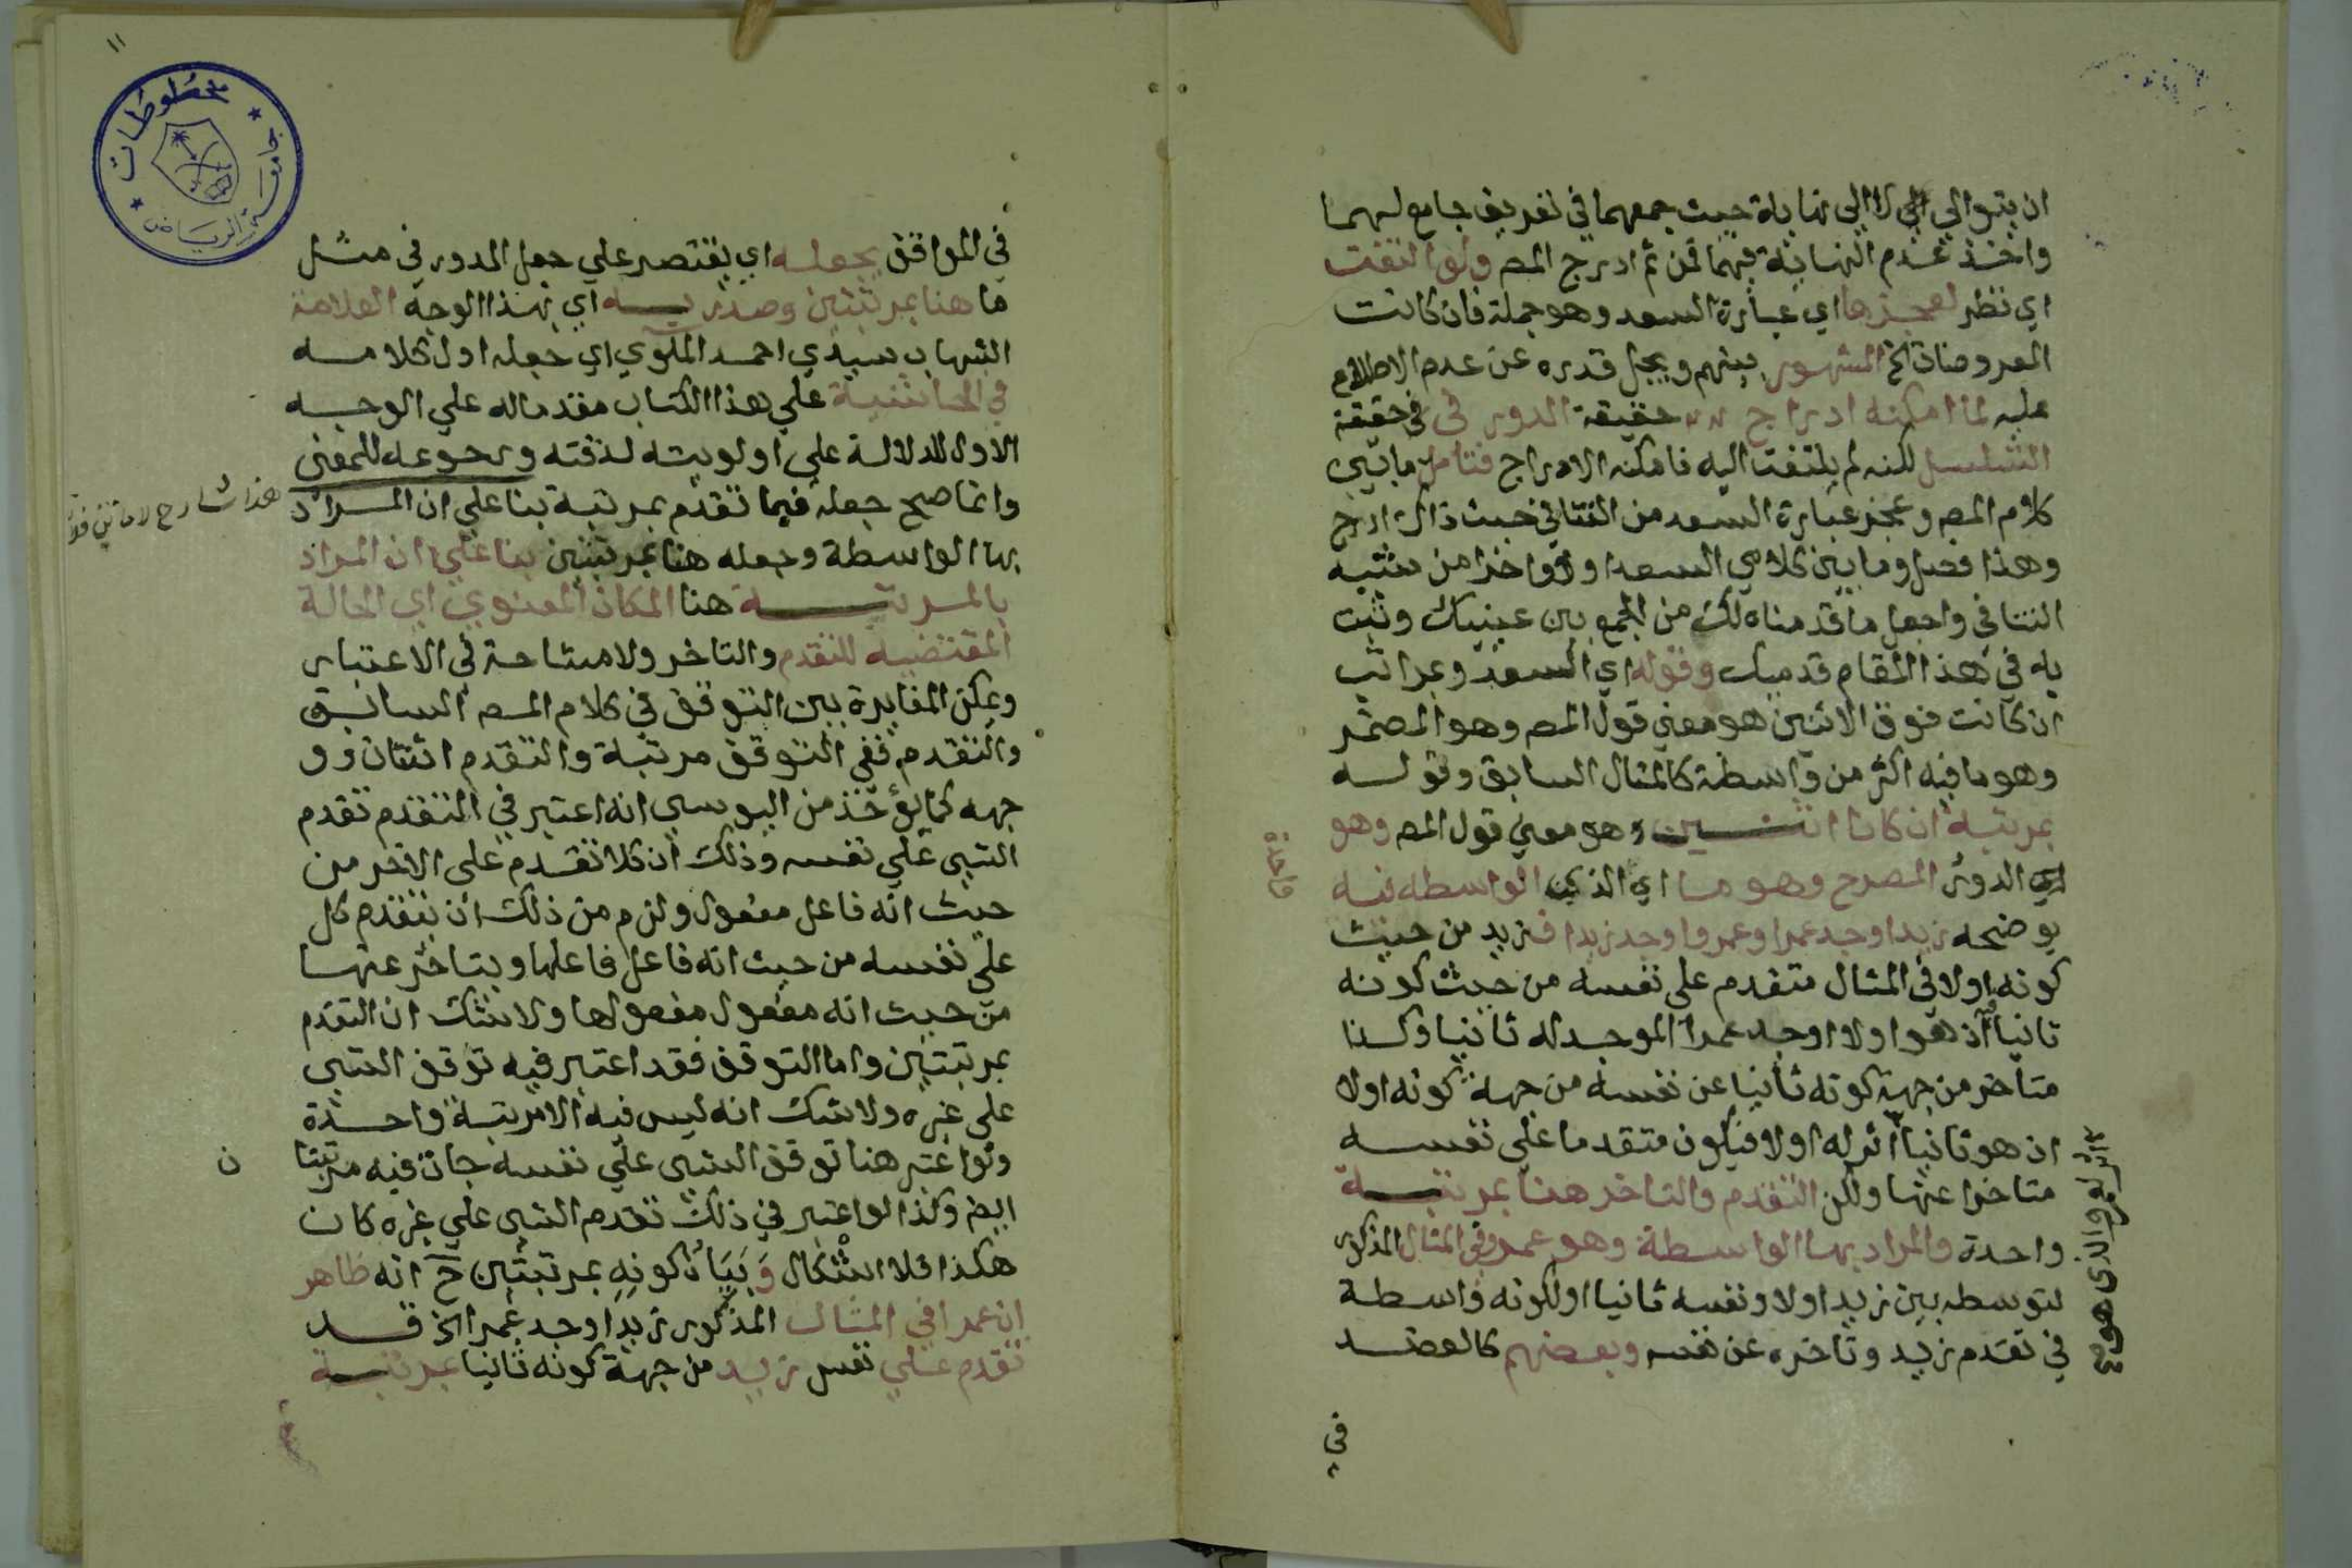 ان يتوالي الي لا الي نهاية حيث جمعهما في تعريف جامع لهما
واخذ عدم النهاية فيهما فمن ثم ادرج المصـ ولو التفت
اي نظر لعجزها اي عبارة السعد وهو جملة فان كانت
المعروضات الخ المشهور بينهم ويجل قدره عن عدم الاطلاع
عليه لما امكنه ادراج حقيقة الدور في في حقيقة
التسلسل لكنه لم يلتفت اليه فامكنه الادراج فتامل ما بين
كلام المصـ وعجز عبارة السعد من التنافي حيث ذاك ادرج
وهذا فصل وما بين كلامي السعد اولا واخرا من شبه
التنافي واجعل ما قدمناه لك من الجمع بين عينيك وثبت
به في هذا المقام قدميك وقوله اي السعد وبمراتب
ان كانت فوق الاثنين هو معني قول المصـ وهو المضمر
وهو ما فيه اكثر من واسطة كالمثال السابق وقوله
بمرتبة ان كانا اثنين هو معني قول المصـ وهو
اي الدور المصرح وهو ما اي الذي الواسطه فيه
واحدة
يوضحه زيد اوجد عمرا وعمرو اوجد زيدا فزيد من حيث
كونه اولا في المثال متقدم علي نفسه من حيث كونه
ثانيا اذ هو اولا اوجد عمرا الموجد له ثانيا وكذا
متاخر من جهة كونه ثانيا عن نفسه من جهة كونه اولا
اذ هو ثانيا اثر له اولا فيكون متقدما علي نفسه
متاخرا عنها ولكن التقدم والتاخر هنا بمرتبة
واحدة والمراد بها الواسطة وهو عمرو في المثال المذكور
لتوسطه بين زيد اولا ونفسه ثانيا او لكونه واسطة
في تقدم زيد وتاخره عن نفسه وبعضهم كالعضد
في
١١
مخطوطات
جامعة الرياض
في المواقف يجعله اي يقتصر علي جعل الدور في مثل
ما هنا بمرتبتين وصدر به اي بهذا الوجه العلامة
الشهاب سيدي احمد الملوي اي جعله اول كلامه
في الحاشية علي هذا الكتاب مقدما له علي الوجه
الاول للدلالة علي اولويته لدقته ورجوعه للمعني
هذا شارح لا ماتن
وانما صح جعله فيما تقدم بمرتبة بنا علي ان المراد
بها الواسطة وجعله هنا بمرتبتين بنا علي ان المراد
بالمرتبة هنا المكان المعنوي اي الحالة
المقتضيه للتقدم والتاخر ولا مشاحة في الاعتبار
ويمكن المغايرة بين التوقف في كلام المصـ السابق
والتقدم ففي التوقف مرتبة والتقدم اثنتان وو
جهه كما يؤخذ من اليوسي انه اعتبر في التقدم تقدم
الشي علي نفسه وذلك ان كلا تقدم علي الاخر من
حيث انه فاعل مفعول ولزم من ذلك ان يتقدم كل
علي نفسه من حيث انه فاعل فاعلها ويتاخر عنها
من حيث انه مفعول مفعولها ولا شك ان التقدم
بمرتبتين واما التوقف فقد اعتبر فيه توقف الشي
علي غيره ولا شك انه ليس فيه الا مرتبة واحدة
ولو اعتبر هنا توقف الشي علي نفسه جات فيه مرتبتا
ن
ايضـ وكذا لو اعتبر في ذلك تقدم الشي علي غيره كان
هكذا فلا اشكال وَبَيَانُ كونِهِ بمرتبتين ح انه ظاهر
ان عمرا في المثال المذكور زيد اوجد عمرا الخ قد
تقدم علي نفس زيد من جهة كونه ثانيا بمرتبة